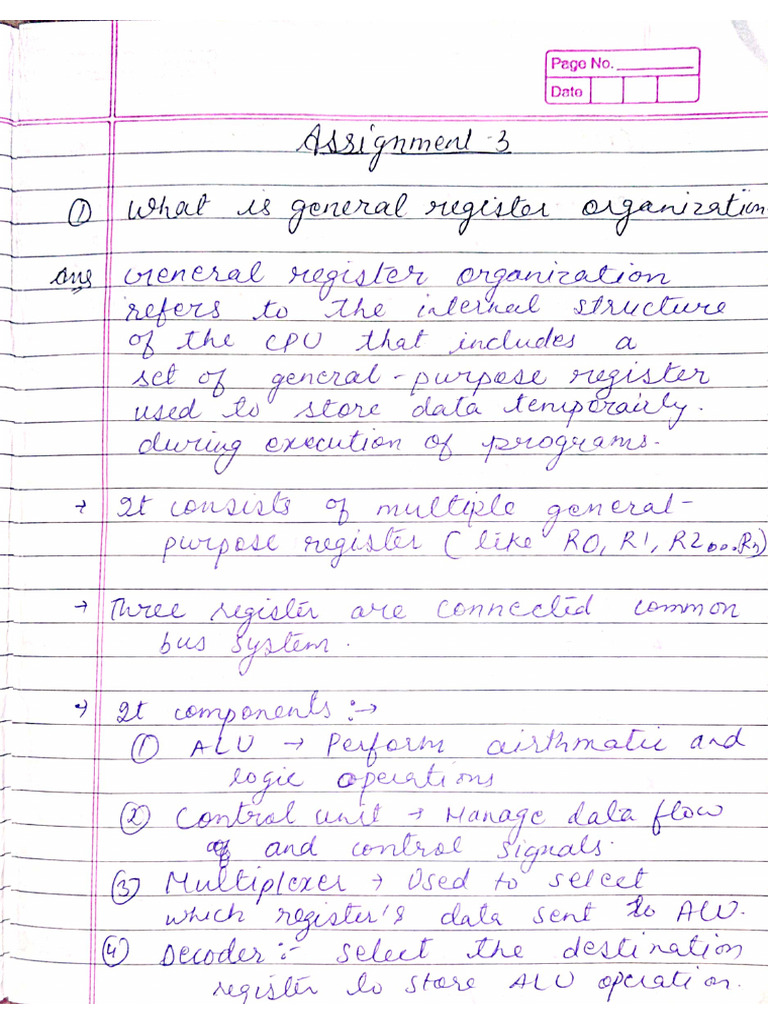 Page No.
Date
Assignment-3
① What is general register organization
Ans General register organization
refers to the internal structure
of the CPU that includes a
set of general-purpose register
used to store data temporairly.
during execution of programs.
→ It consists of multiple general-
purpose register (like R0, R1, R2....Rn)
→ Three register are connected common
bus system.
→ It components :→
① ALU → Perform airthmatic and
logic operations
② Control unit → Manage data flow
and control signals.
③ Multiplexer → Used to select
which register's data sent to ALU.
④ Decoder :- select the destination
register to store ALU operation.